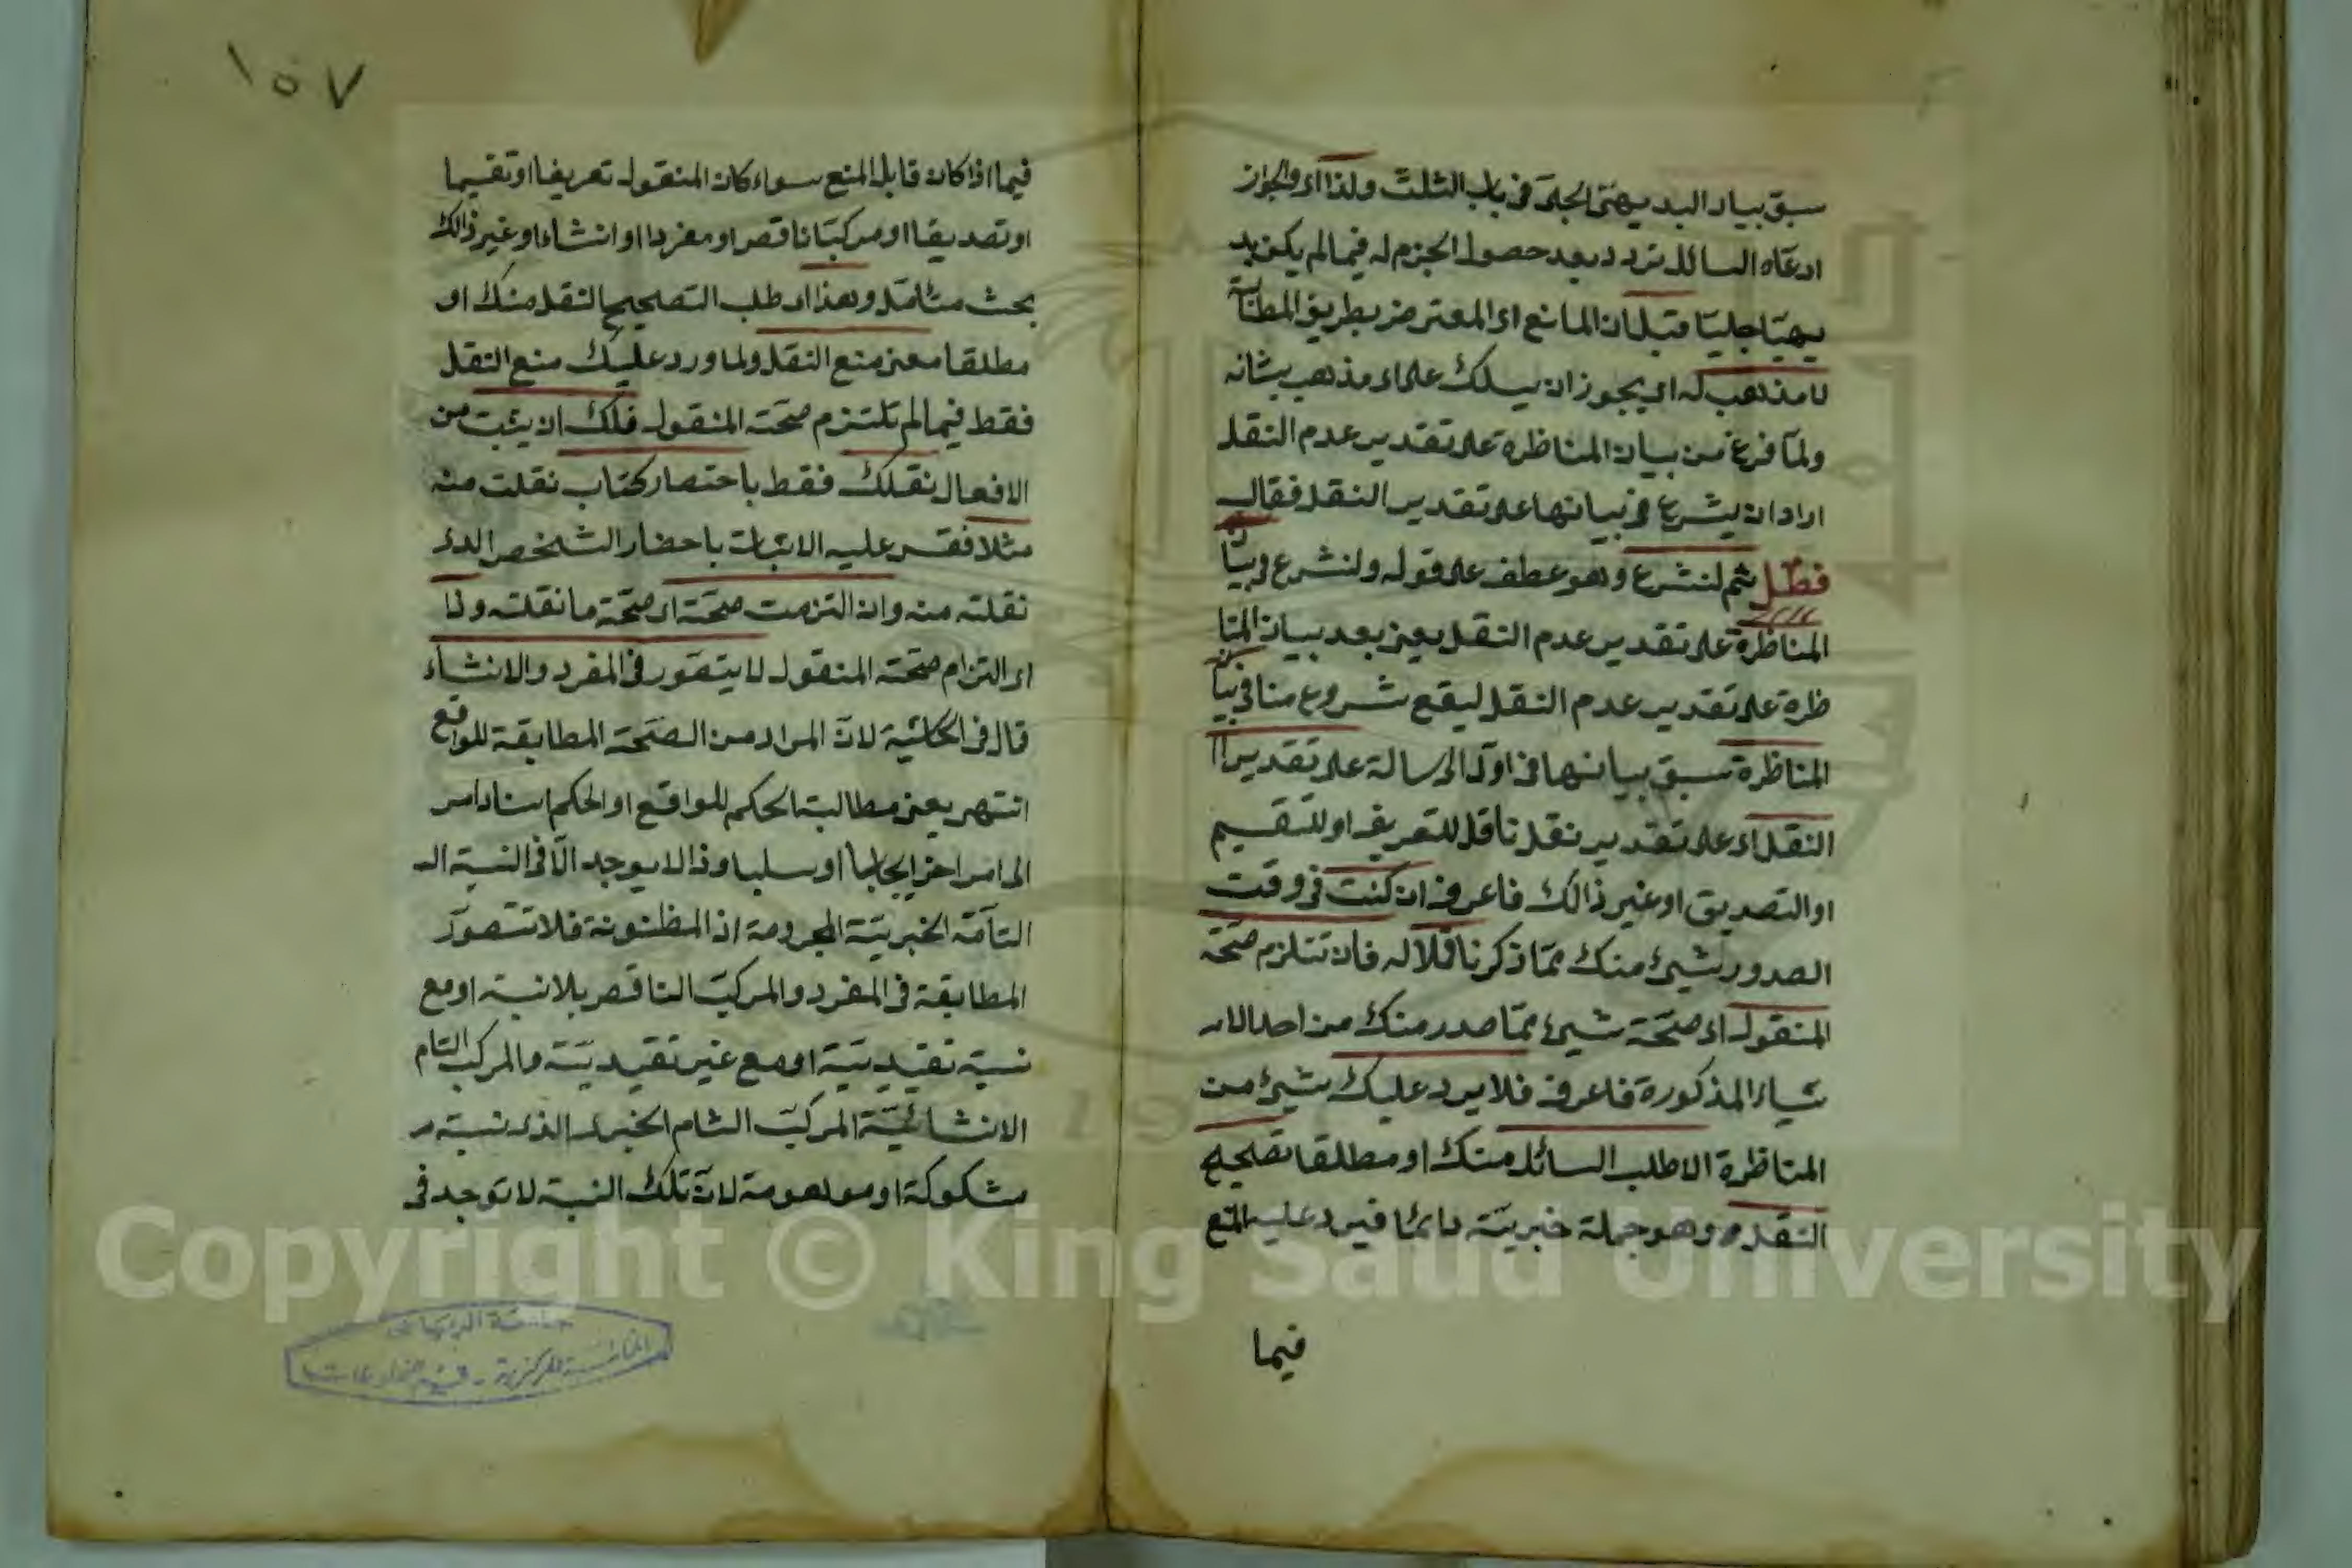 سبق بيان البديهى الجلى فى باب الثلث ولذا اى والجواز
ادعاه السائل تردد بعد حصول الجزم له فيما لم يكن بد
يهيا جليا قيل ان المانع اى المعترض بطريق المطالبة
لا مذهب له اى يجوز ان يسلك على اى مذهب يشانه
ولما فرغ من بيان المناظرة على تقدير عدم النقل
اراد ان يشرع فى بيانها على تقدير النقل فقال
فصل ثم لنشرع وهو عطف على قوله ولنشرع فى بيان
المناظرة على تقدير عدم النقل يعنى بعد بيان المنا
ظرة على تقدير عدم النقل ليقع شروع منا فى بيان
المناظرة سبق بيانها فى اول الرسالة على تقدير ا
النقل اى على تقدير نقل ناقل للتعريف او للتقسيم
او التصديق او غير ذالك فاعرف ان كنت فى وقت
الصدور شيئ منك مما ذكر ناقلا له فان تلتزم صحة
المنقول اى صحة شيئ مما صدر منك من احد الا
شياء المذكورة فاعرف فلا يرد عليك شيئ من
المناظرة الا طلب السائل منك او مطلقا تصحيح
النقل وهو جملة خبرية دائما فيرد عليه المنع
فيما
١٥٧
فيما اذا كان قابل المنع سواء كان المنقول تعريفا او تقسيما
او تصديقا او مركبا ناقص او مفردا او انشاء او غير ذالك
بحث متامل وهذا اى طلب التصحيح النقل منك او
مطلقا معنى منع النقل ولما ورد عليك منع النقل
فقط فيما لم تلتزم صحة المنقول فلك ان يثبت من
الافعال نقلك فقط باحتصار كتاب نقلت منه
مثلا فقس عليه الاثبات باحضار الشخص الذى
نقلته منه وان التزمت صحة اى صحة ما نقلته وذا
اى التزام صحة المنقول لا يتصور فى المفرد والانشاء
قال فى الحاشية لان المراد من الصحة المطابقة للواقع
انتهى يعنى مطالبة الحكم للواقع او الحكم اسناد امر
الى امر اخر ايجابا او سلبا وذا لا يوجد الا فى النسبة الـ
التامة الخبرية المجزومة اذ المظنونة فلا تتصور
المطابقة فى المفرد والمركب الناقص بلا نسبة او مع
نسبة تقيدية او مع غير تقيدية والمركب التام
الانشائية المركب التام الخبرى الذى نسبة
مشكوكة او موهومة لان تلك النسبة لا توجد فى
Copyright © King Saud University